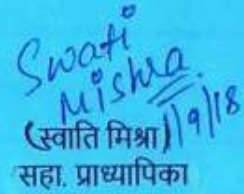 Swati
Mishra
1/9/18
(स्वाति मिश्रा)
सहा. प्राध्यापिका